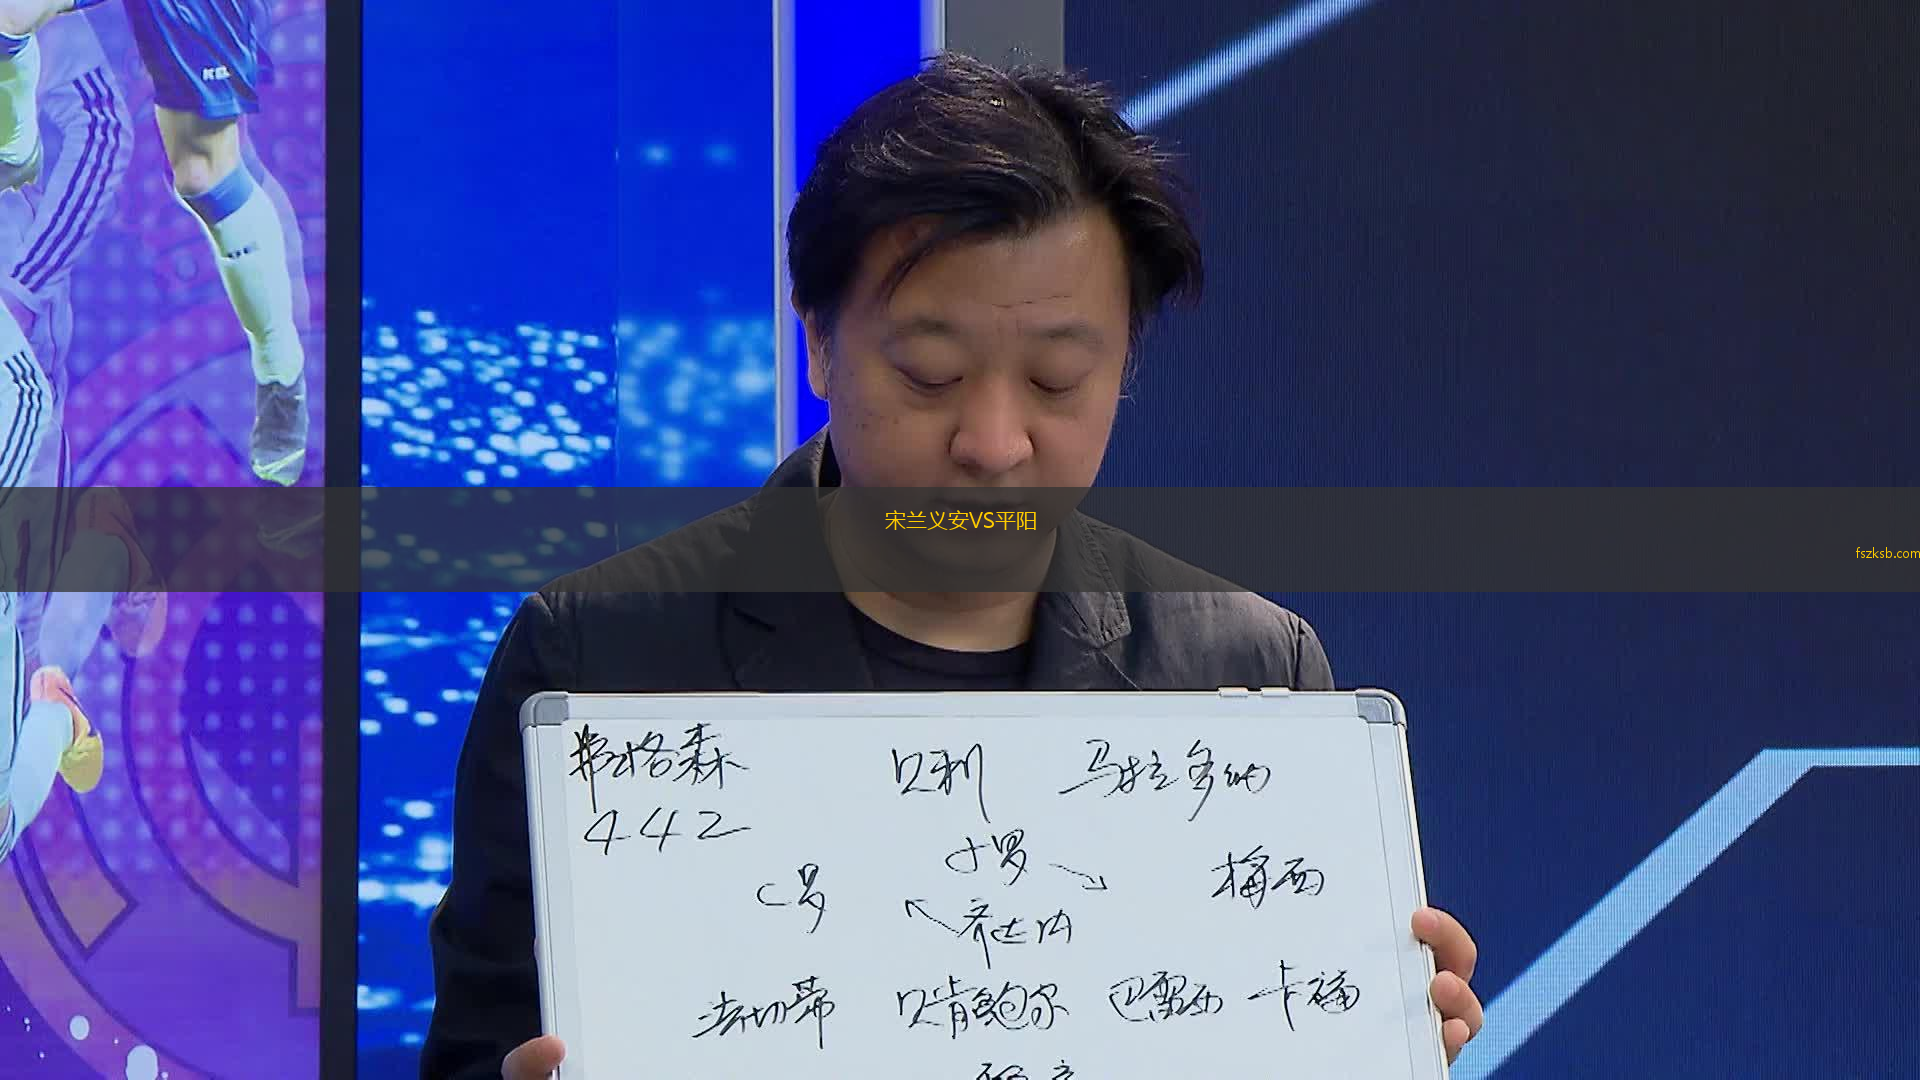 KEL
宋兰义安VS平阳
fszksb.com
弗格森 贝利 马拉多纳
442
小罗
C罗 梅西
齐达内
法切蒂 贝肯鲍尔 巴雷西 卡福